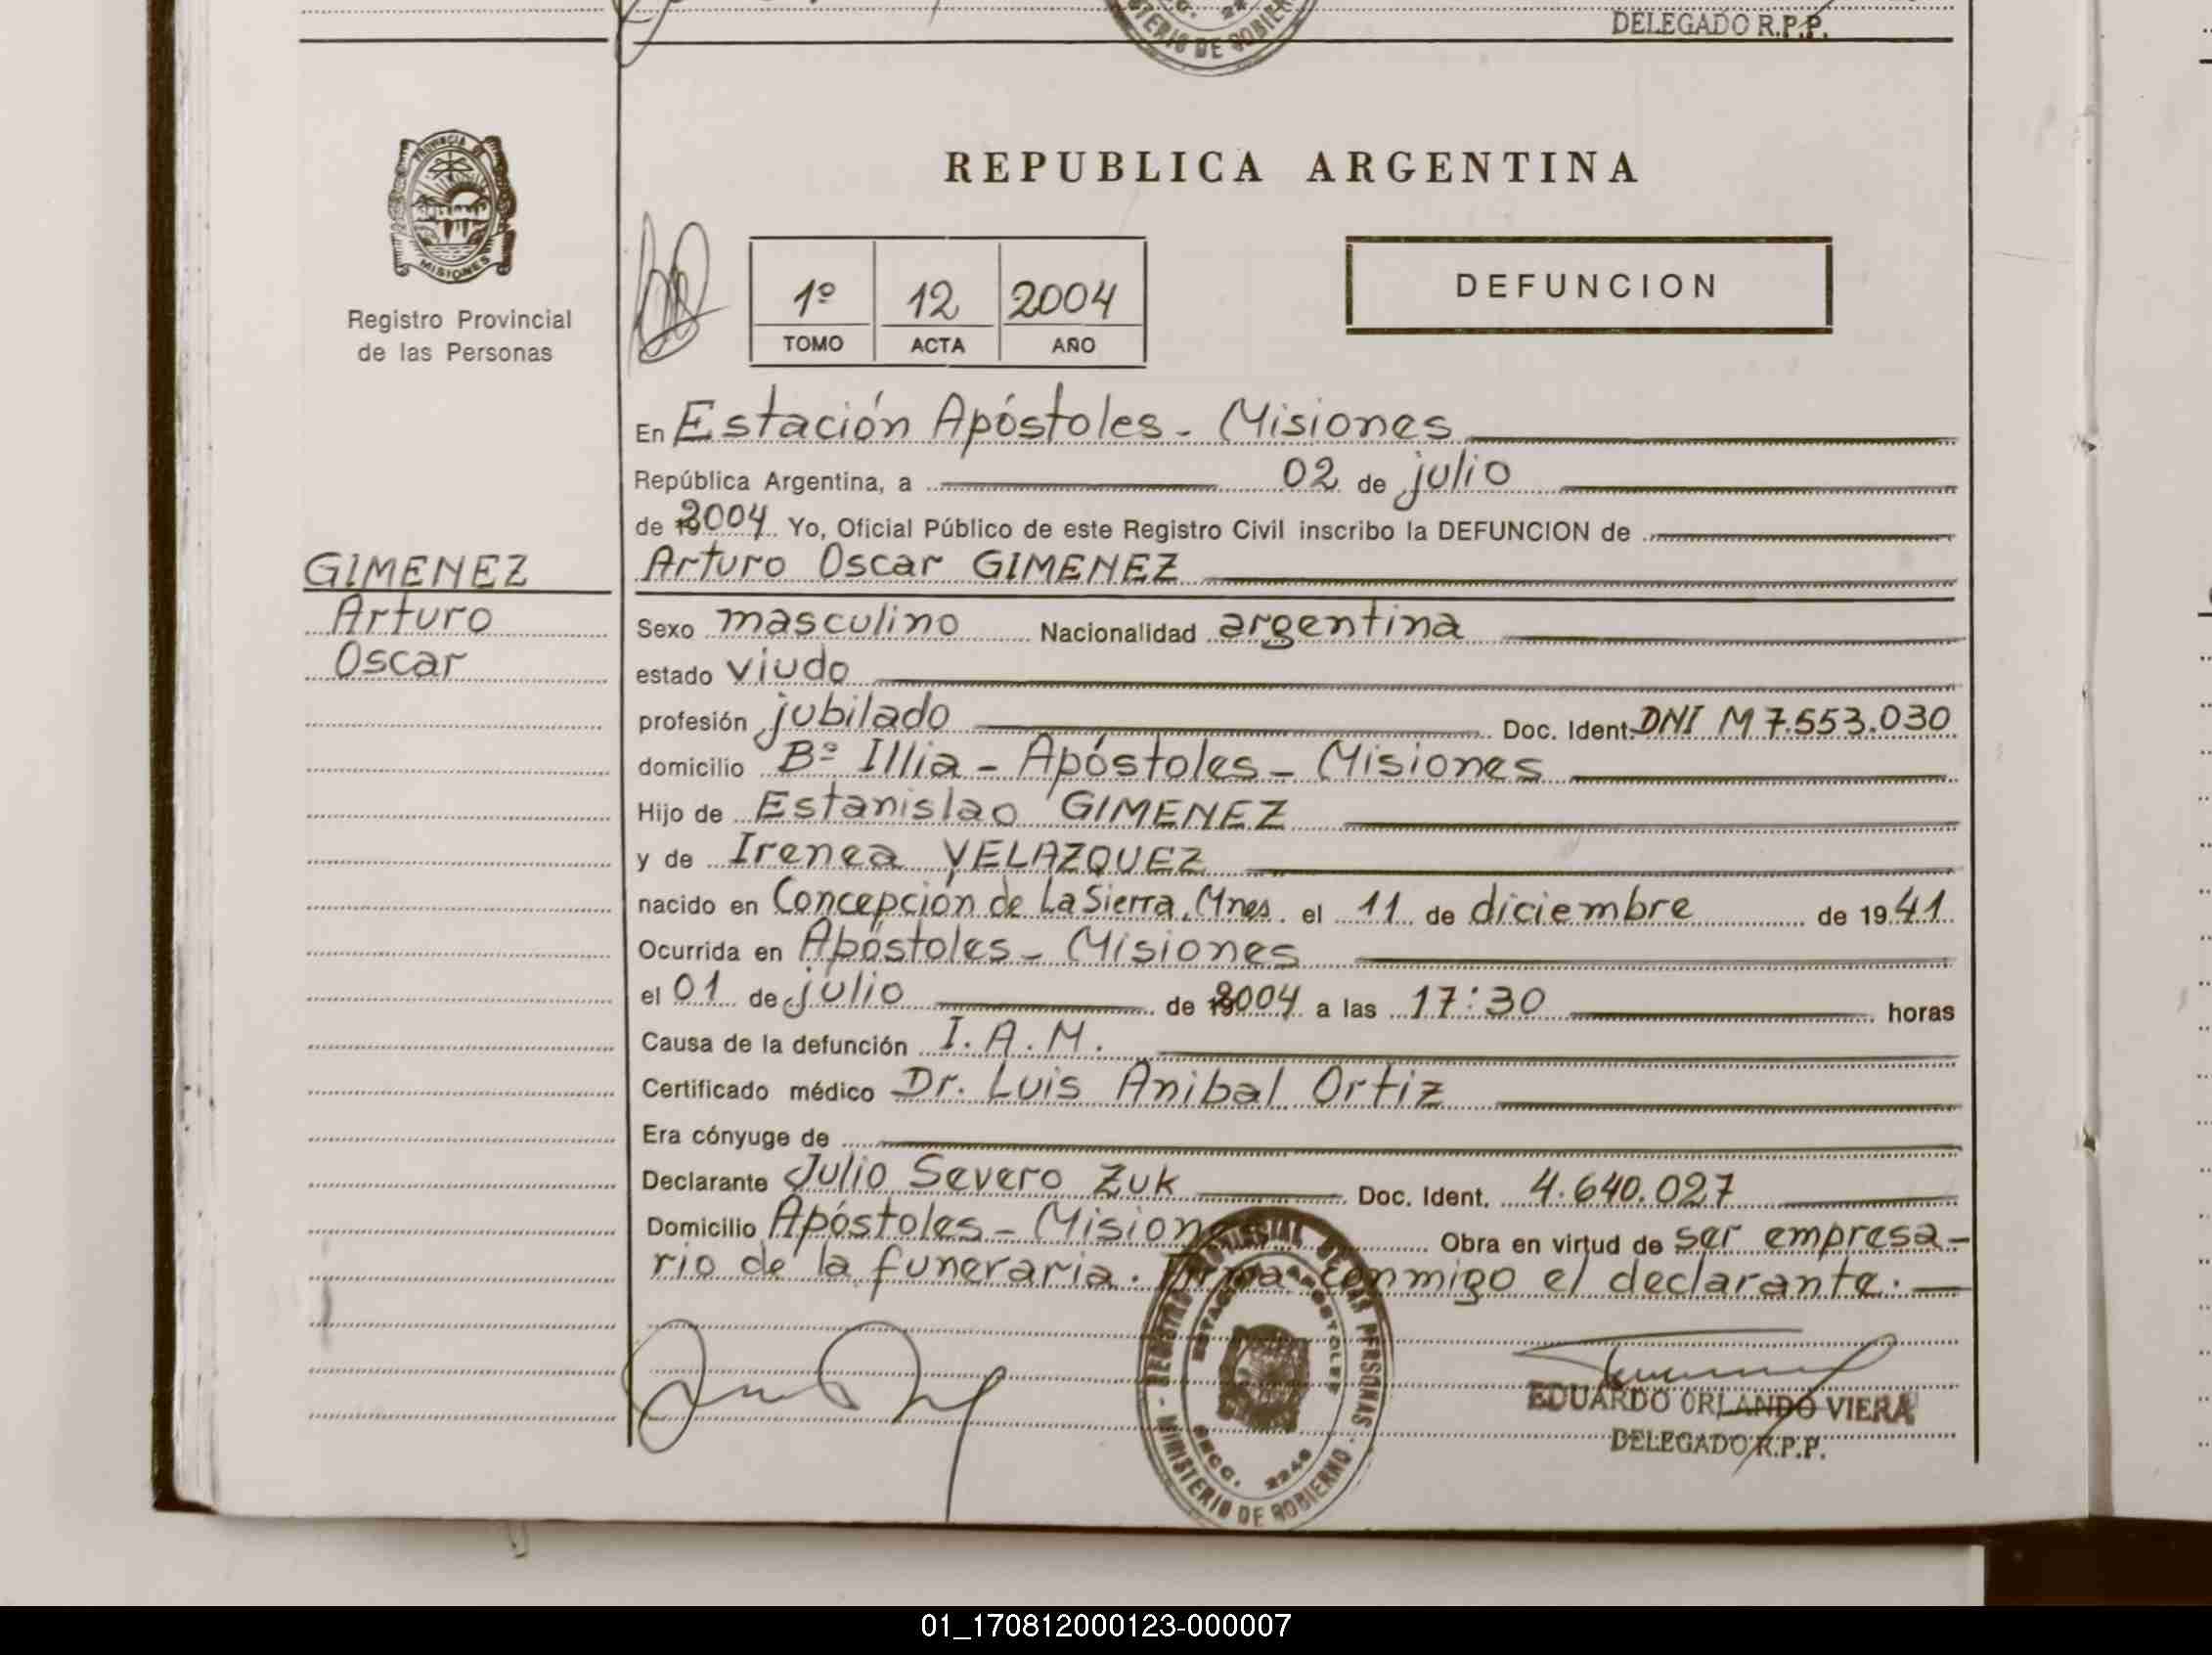 DELEGADO R.P.P.
TERIO DE GOBIER
PROVINCIA DE
MISIONES
Registro Provincial
de las Personas
REPUBLICA ARGENTINA
1º 12 2004
TOMO ACTA AÑO
DEFUNCION
En Estación Apóstoles - Misiones
República Argentina, a 02 de julio
de 2004 Yo, Oficial Público de este Registro Civil inscribo la DEFUNCION de
GIMENEZ
Arturo
Oscar
Arturo Oscar GIMENEZ
Sexo masculino Nacionalidad argentina
estado viudo
profesión jubilado Doc. Ident. DNI M 7.553.030
domicilio Bº Illia - Apóstoles - Misiones
Hijo de Estanislao GIMENEZ
y de Irenea VELAZQUEZ
nacido en Concepción de La Sierra, Mnes. el 11 de diciembre de 1941
Ocurrida en Apóstoles - Misiones
el 01 de julio de 2004 a las 17:30 horas
Causa de la defunción I.A.M.
Certificado médico Dr. Luis Anibal Ortiz
Era cónyuge de
Declarante Julio Severo Zuk Doc. Ident. 4.640.027
Domicilio Apóstoles - Misiones Obra en virtud de ser empresa-
rio de la funeraria. Firma conmigo el declarante. —
REGISTRO PROVINCIAL DE LAS PERSONAS - MINISTERIO DE GOBIERNO -
ESTACION APOSTOLES
SECC. 2246
EDUARDO ORLANDO VIERA
DELEGADO R.P.P.
01_170812000123-000007